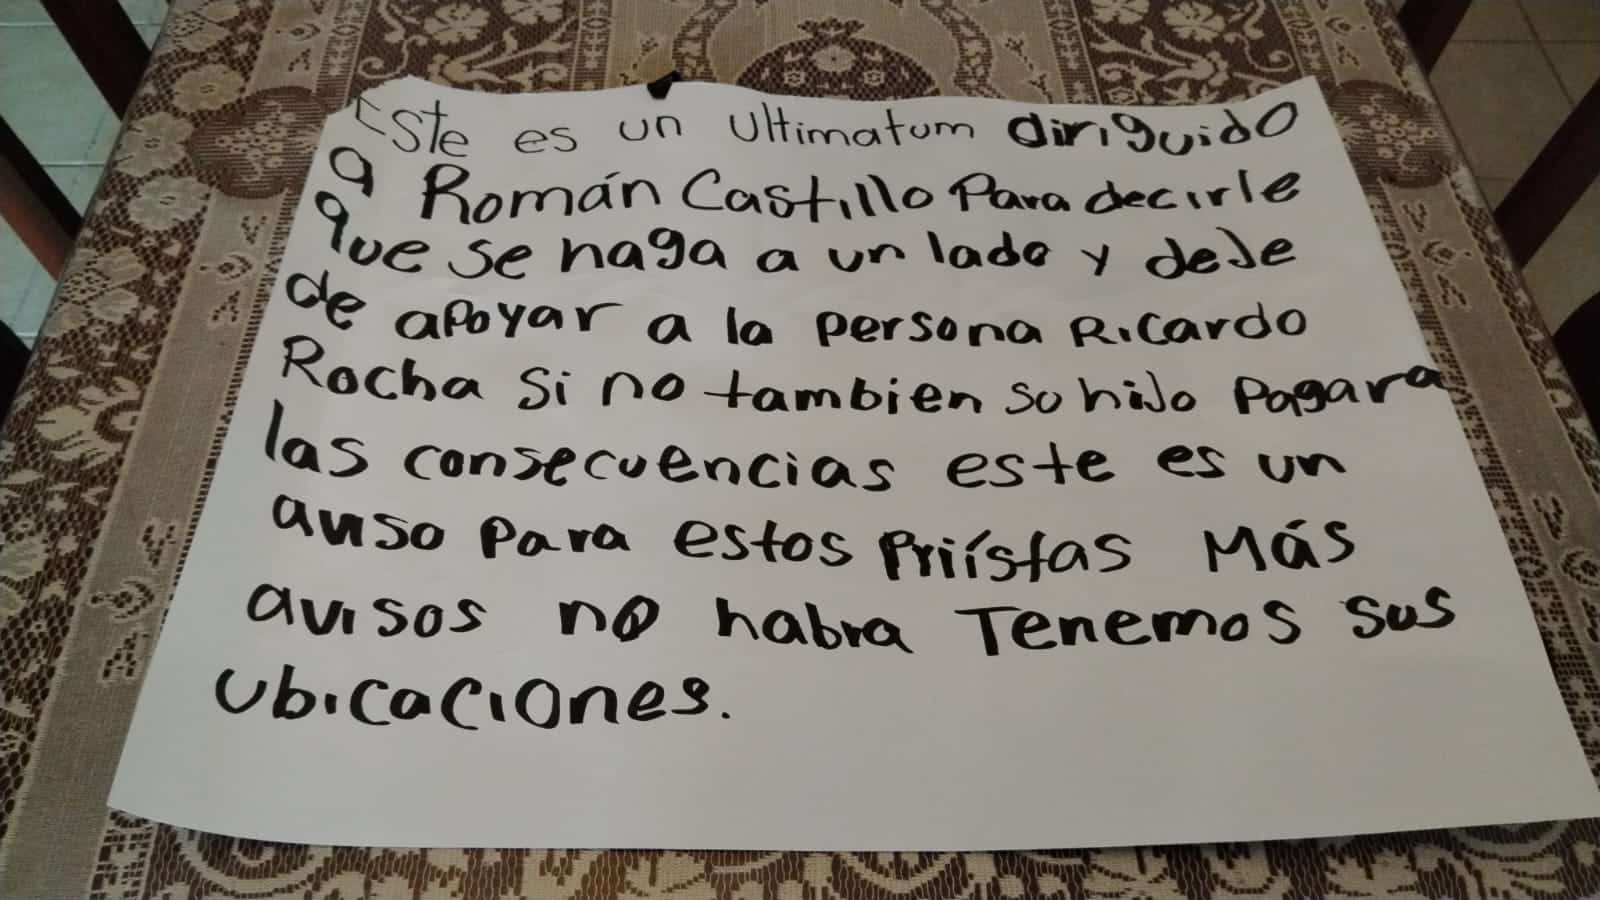 Este es un ultimatum diriguido
a Román Castillo Para decirle
que se haga a un lado y deje
de apoyar a la persona Ricardo
Rocha si no tambien su hijo pagara
las consecuencias este es un
aviso para estos Priístas Más
avisos no habra Tenemos sus
ubicaciones.